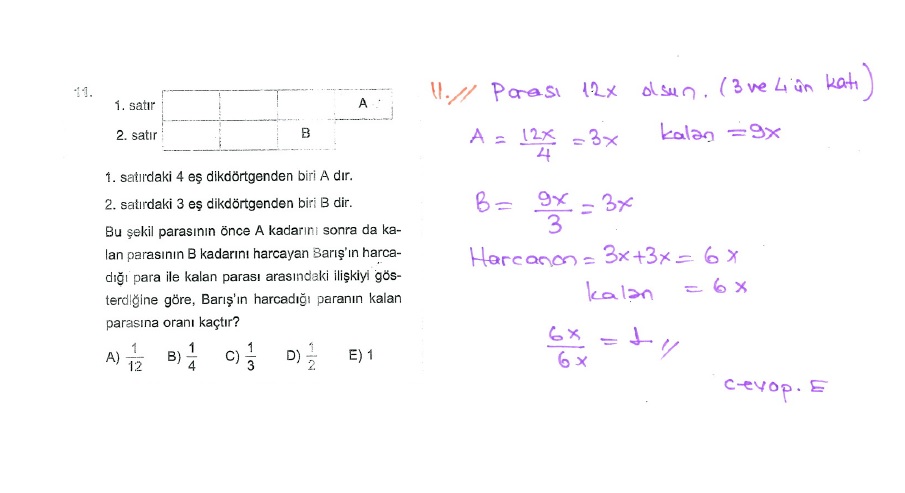 11.
1. satır A
2. satır B
1. satırdaki 4 eş dikdörtgenden biri A dır.
2. satırdaki 3 eş dikdörtgenden biri B dir.
Bu şekil parasının önce A kadarını sonra da ka-
lan parasının B kadarını harcayan Barış'ın harca-
dığı para ile kalan parası arasındaki ilişkiyi gös-
terdiğine göre, Barış'ın harcadığı paranın kalan
parasına oranı kaçtır?
A) 1/12 B) 1/4 C) 1/3 D) 1/2 E) 1
11.// Parası 12x olsun. (3 ve 4 ün katı)
A = 12x/4 = 3x kalan = 9x
B = 9x/3 = 3x
Harcanan = 3x+3x = 6x
kalan = 6x
6x/6x = 1 //
cevap. E